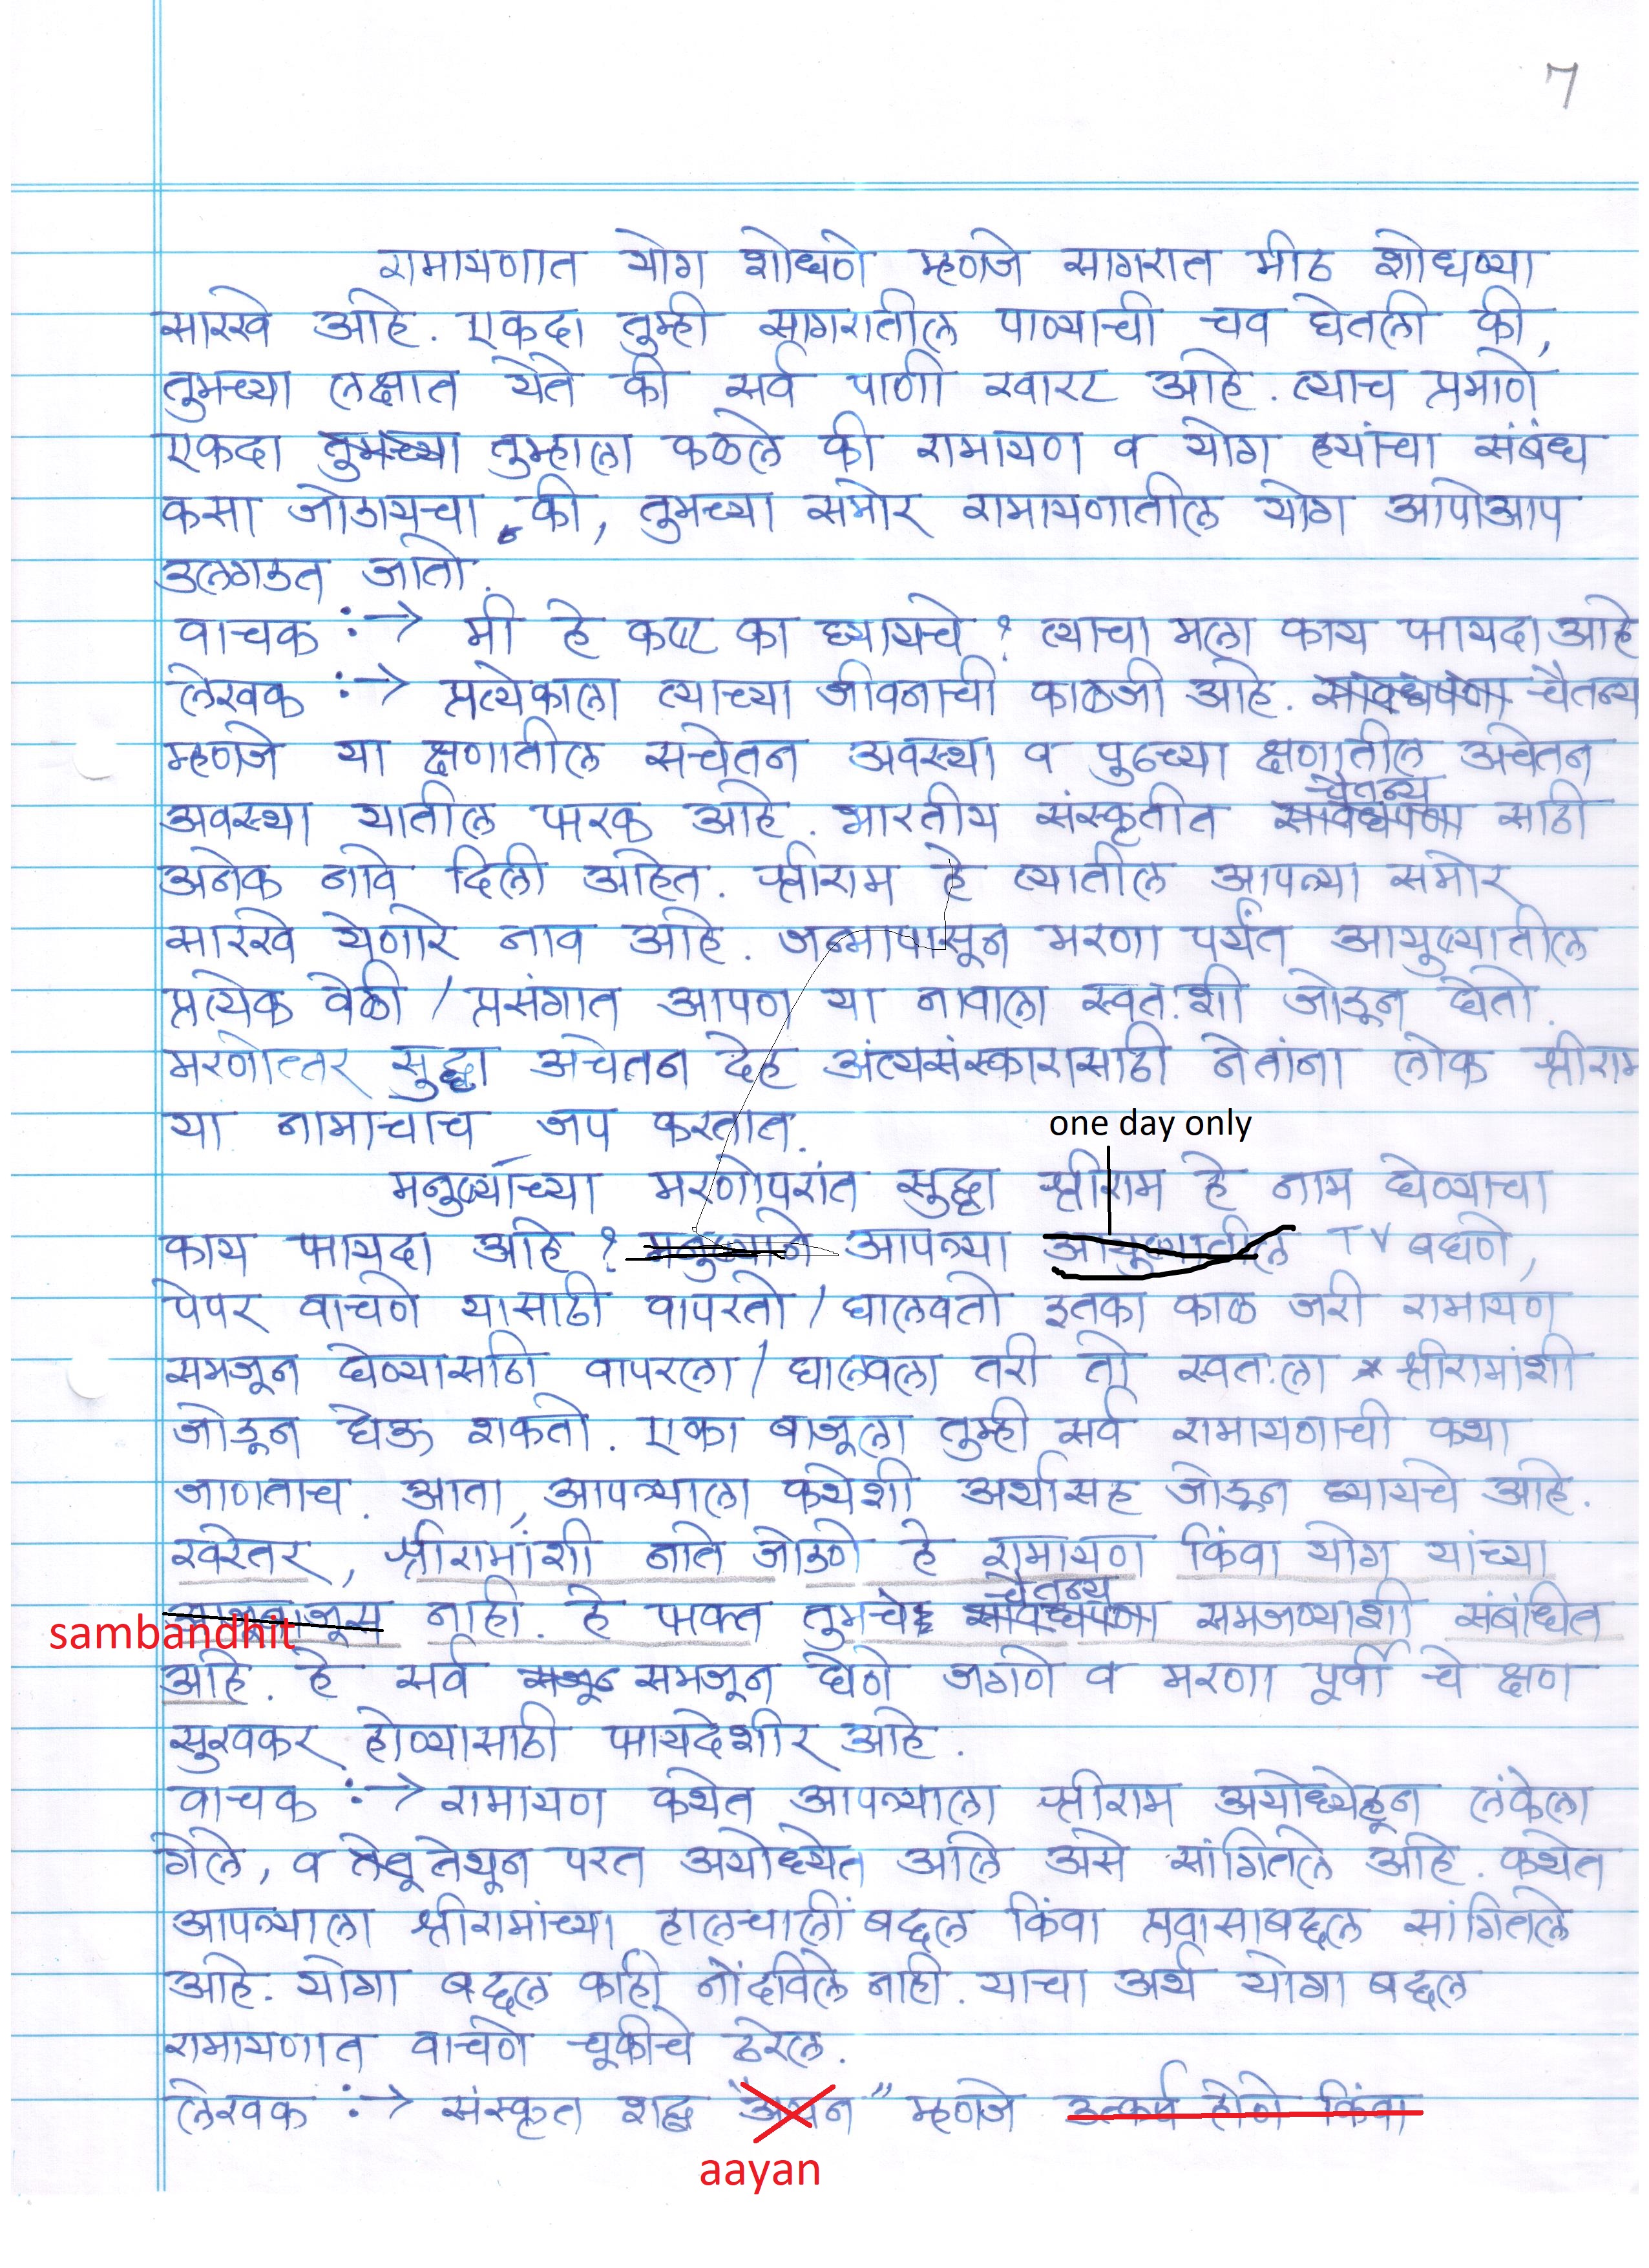 7
रामायणात योग शोधणे म्हणजे सागरात मीठ शोधण्या
सारखे आहे. एकदा तुम्ही सागरातील पाण्याची चव घेतली की,
तुमच्या लक्षात येते की सर्व पाणी खारट आहे. त्याच प्रमाणे
एकदा तुमच्या तुम्हाला कळले की रामायण व योग ह्यांचा संबंध
कसा जोडायचा की, तुमच्या समोर रामायणातील योग आपोआप
उलगडत जातो.
वाचक :→ मी हे कष्ट का घ्यायचे ? त्याचा मला काय फायदा आहे
लेखक :→ प्रत्येकाला त्याच्या जीवनाची काळजी आहे. सावधपणा चैतन्य
म्हणजे या क्षणातील सचेतन अवस्था व पुढच्या क्षणातील अचेतन
चैतन्य
अवस्था यातील फरक आहे. भारतीय संस्कृतीत सावधपणा साठी
अनेक नावे दिली आहेत. श्रीराम हे त्यातील आपल्या समोर
सारखे येणारे नाव आहे. जन्मापासून मरणा पर्यंत आयुष्यातील
प्रत्येक वेळी / प्रसंगात आपण या नावाला स्वत:शी जोडून घेतो.
मरणोत्तर सुद्धा अचेतन देह अंत्यसंस्कारासाठी नेतांना लोक श्रीराम
या नामाचाच जप करतात.
one day only
मनुष्याच्या मरणोपरांत सुद्धा श्रीराम हे नाम घेण्याचा
काय फायदा आहे ? मनुष्याने आपल्या आयुष्यातील TV बघणे,
पेपर वाचणे यासाठी वापरतो / घालवतो इतका काळ जरी रामायण
समजून घेण्यासाठी वापरला / घालवला तरी तो स्वत:ला श्रीरामांशी
जोडून घेऊ शकतो. एका बाजूला तुम्ही सर्व रामायणाची कथा
जाणताच. आता, आपल्याला कथेशी अर्थासह जोडून घ्यायचे आहे.
खरेतर, श्रीरामांशी नाते जोडणे हे रामायण किंवा योग यांच्या
चैतन्य
sambandhit नाही. हे फक्त तुमचे सावधपणा समजण्याशी संबंधित
आहे. हे सर्व समजून घेणे जगणे व मरणा पूर्वी चे क्षण
सुखकर होण्यासाठी फायदेशीर आहे.
वाचक :→ रामायण कथेत आपल्याला श्रीराम अयोध्येहून लंकेला
गेले, व तेथून परत अयोध्येत आले असे सांगितले आहे. कथेत
आपल्याला श्रीरामांच्या हालचालीं बद्दल किंवा प्रवासाबद्दल सांगितले
आहे. योगा बद्दल काही नोंदविले नाही. याचा अर्थ योगा बद्दल
रामायणात वाचणे चूकीचे ठरेल.
लेखक :→ संस्कृत शब्द "अयन" म्हणजे उत्कर्ष होणे किंवा
aayan